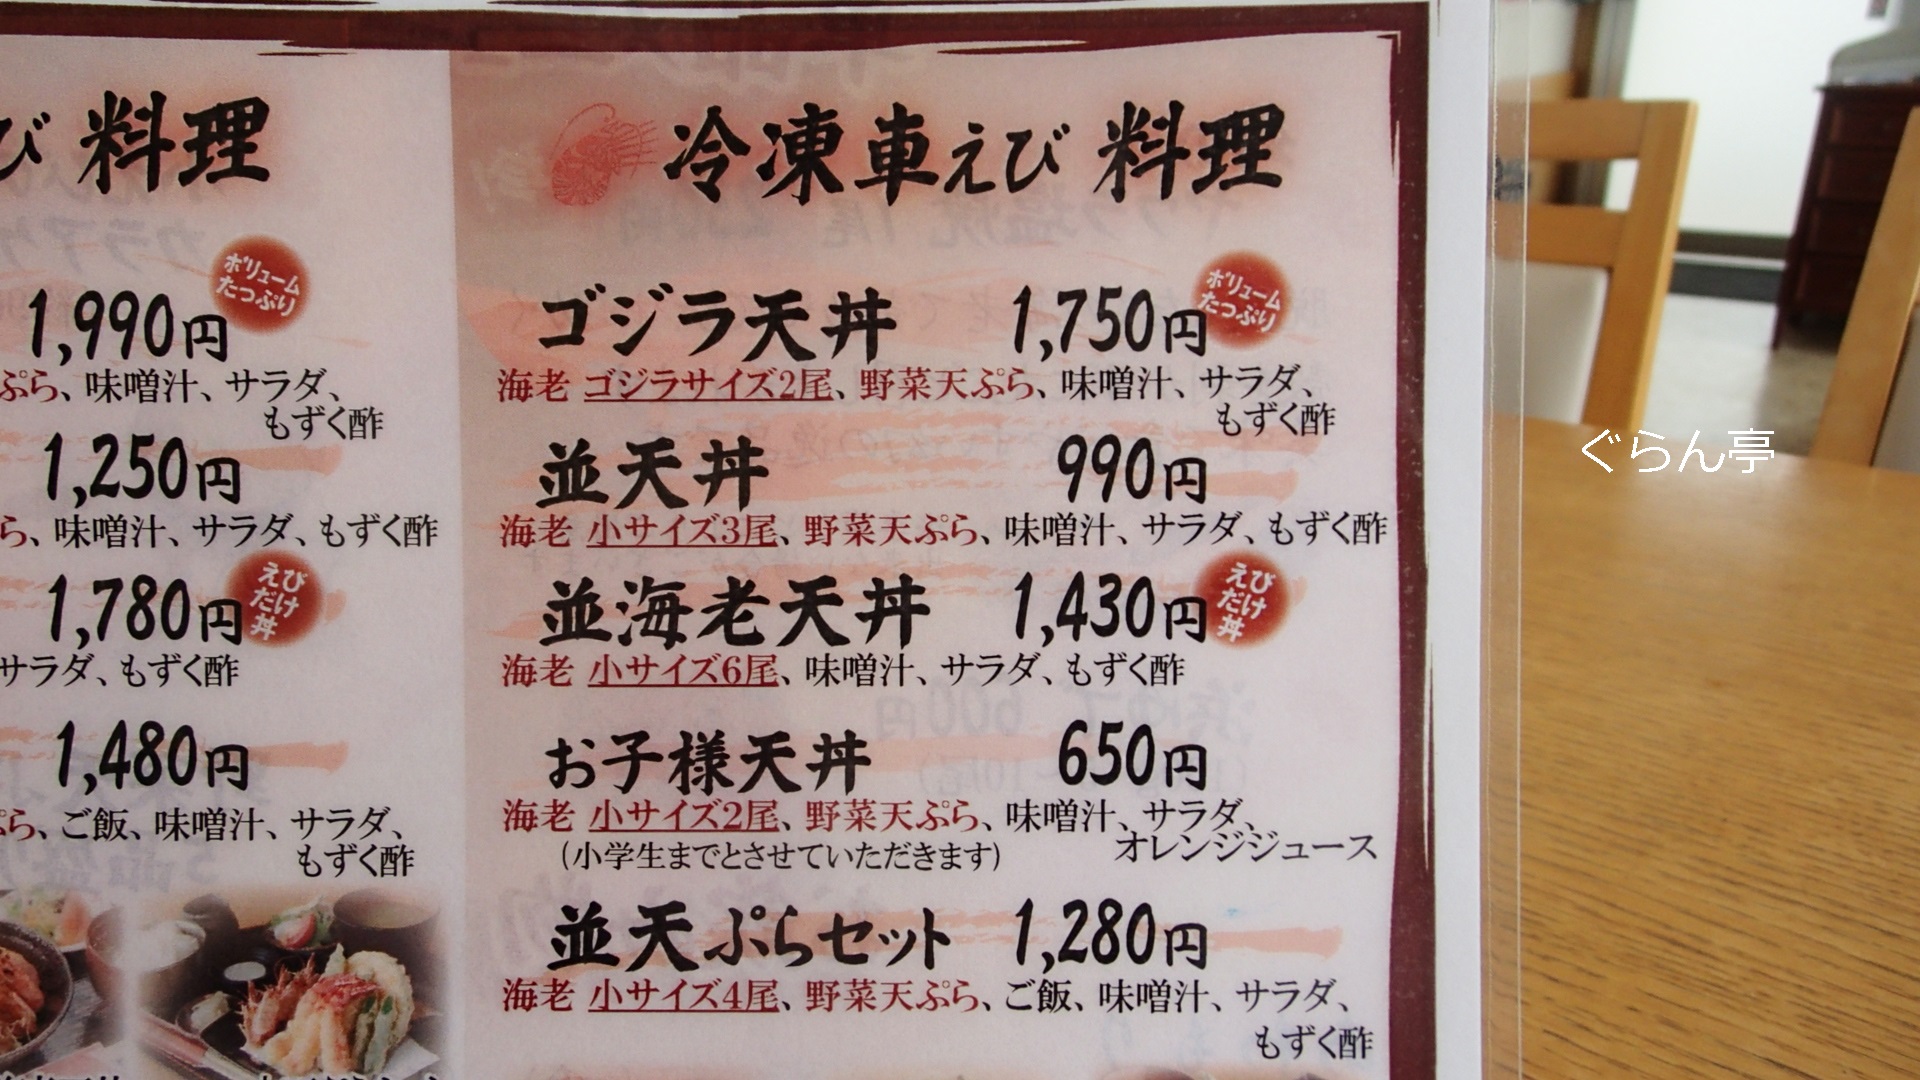 び 料理
ボリューム
たっぷり
1,990円
ぷら、味噌汁、サラダ、
もずく酢
1,250円
ら、味噌汁、サラダ、もずく酢
1,780円
えび
だけ
丼
サラダ、もずく酢
1,480円
ぷら、ご飯、味噌汁、サラダ、
もずく酢
冷凍車えび 料理
ボリューム
たっぷり
ゴジラ天丼 1,750円
海老 ゴジラサイズ2尾、野菜天ぷら、味噌汁、サラダ、
もずく酢
並天丼 990円
海老 小サイズ3尾、野菜天ぷら、味噌汁、サラダ、もずく酢
並海老天丼 1,430円
えび
だけ
丼
海老 小サイズ6尾、味噌汁、サラダ、もずく酢
お子様天丼 650円
海老 小サイズ2尾、野菜天ぷら、味噌汁、サラダ、
オレンジジュース
(小学生までとさせていただきます)
並天ぷらセット 1,280円
海老 小サイズ4尾、野菜天ぷら、ご飯、味噌汁、サラダ、
もずく酢
ぐらん亭